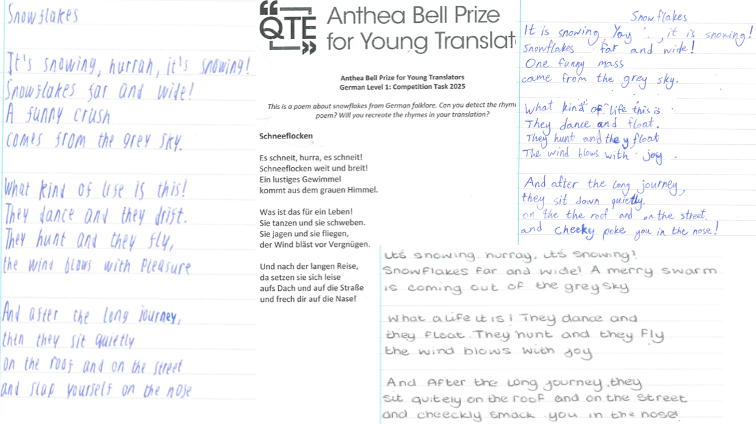 Snowflakes
It's snowing, hurrah, it's snowing!
Snowflakes far and wide!
A funny crush
comes from the grey sky.
What kind of life is this!
They dance and they drift.
They hunt and they fly,
the wind blows with Pleasure
And after the long journey,
then they sit quietly
on the roof and on the street
and slap yourself on the nose
QTE
Anthea Bell Prize
for Young Translat
Anthea Bell Prize for Young Translators
German Level 1: Competition Task 2025
This is a poem about snowflakes from German folklore. Can you detect the rhym
poem? Will you recreate the rhymes in your translation?
Schneeflocken
Es schneit, hurra, es schneit!
Schneeflocken weit und breit!
Ein lustiges Gewimmel
kommt aus dem grauen Himmel.
Was ist das für ein Leben!
Sie tanzen und sie schweben.
Sie jagen und sie fliegen,
der Wind bläst vor Vergnügen.
Und nach der langen Reise,
da setzen sie sich leise
aufs Dach und auf die Straße
und frech dir auf die Nase!
Snowflakes
It is snowing, Yay, it is snowing!
Snowflakes far and wide!
One funny mass
came from the grey sky.
What kind of life this is
They dance and float.
They hunt and they float
The wind blows with joy.
And after the long journey,
they sit down quietly.
on the the roof and on the street.
and cheeky poke you in the nose!
Its snowing hurray, its snowing?
Snowflakes far and wide! A merry swarm
is coming out of the grey sky
What a life it is! They dance and
they float. They hunt and they fly
the wind blows with joy
And After the long journey they
sit quitely on the roof and on the street
and cheeckly smack you in the nose.